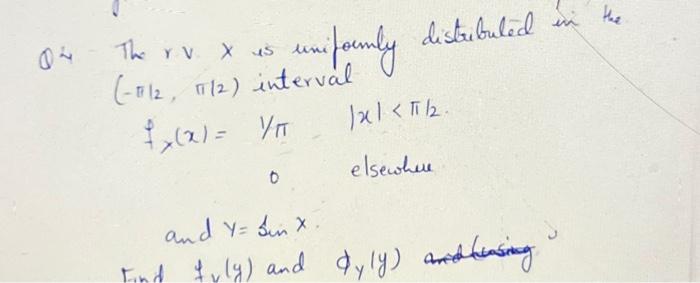 Q4 The r.v. X is uniformly distributed in the
(-π/2, π/2) interval
f_X(x) = 1/π |x| < π/2.
0 elsewhere
and Y = Sin X.
Find f_Y(y) and ϕ_Y(y)